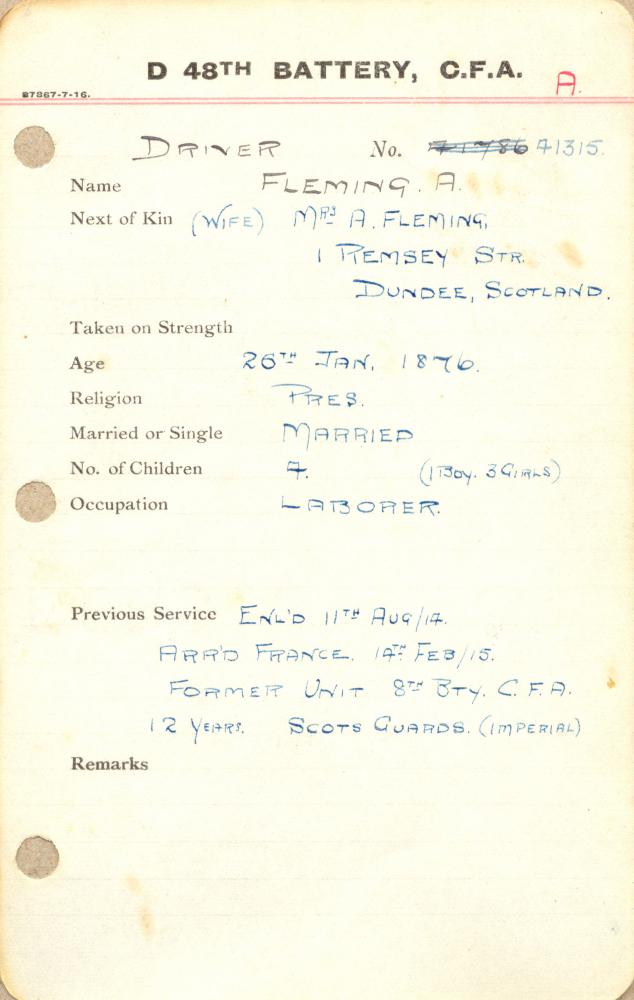 D 48TH BATTERY, C.F.A.
A.
87867-7-16.
DRIVER No. 41786 41315.
Name FLEMING. A.
Next of Kin (WIFE) MRS A. FLEMING,
1 REMSEY STR.
DUNDEE, SCOTLAND.
Taken on Strength
Age 26TH JAN. 1876.
Religion PRES.
Married or Single MARRIED
No. of Children 4. (1 BOY. 3 GIRLS)
Occupation LABORER.
Previous Service ENL'D 11TH AUG/14.
ARR'D FRANCE. 14TH FEB/15.
FORMER UNIT 8TH BTY. C.F.A.
12 YEARS. SCOTS GUARDS. (IMPERIAL)
Remarks